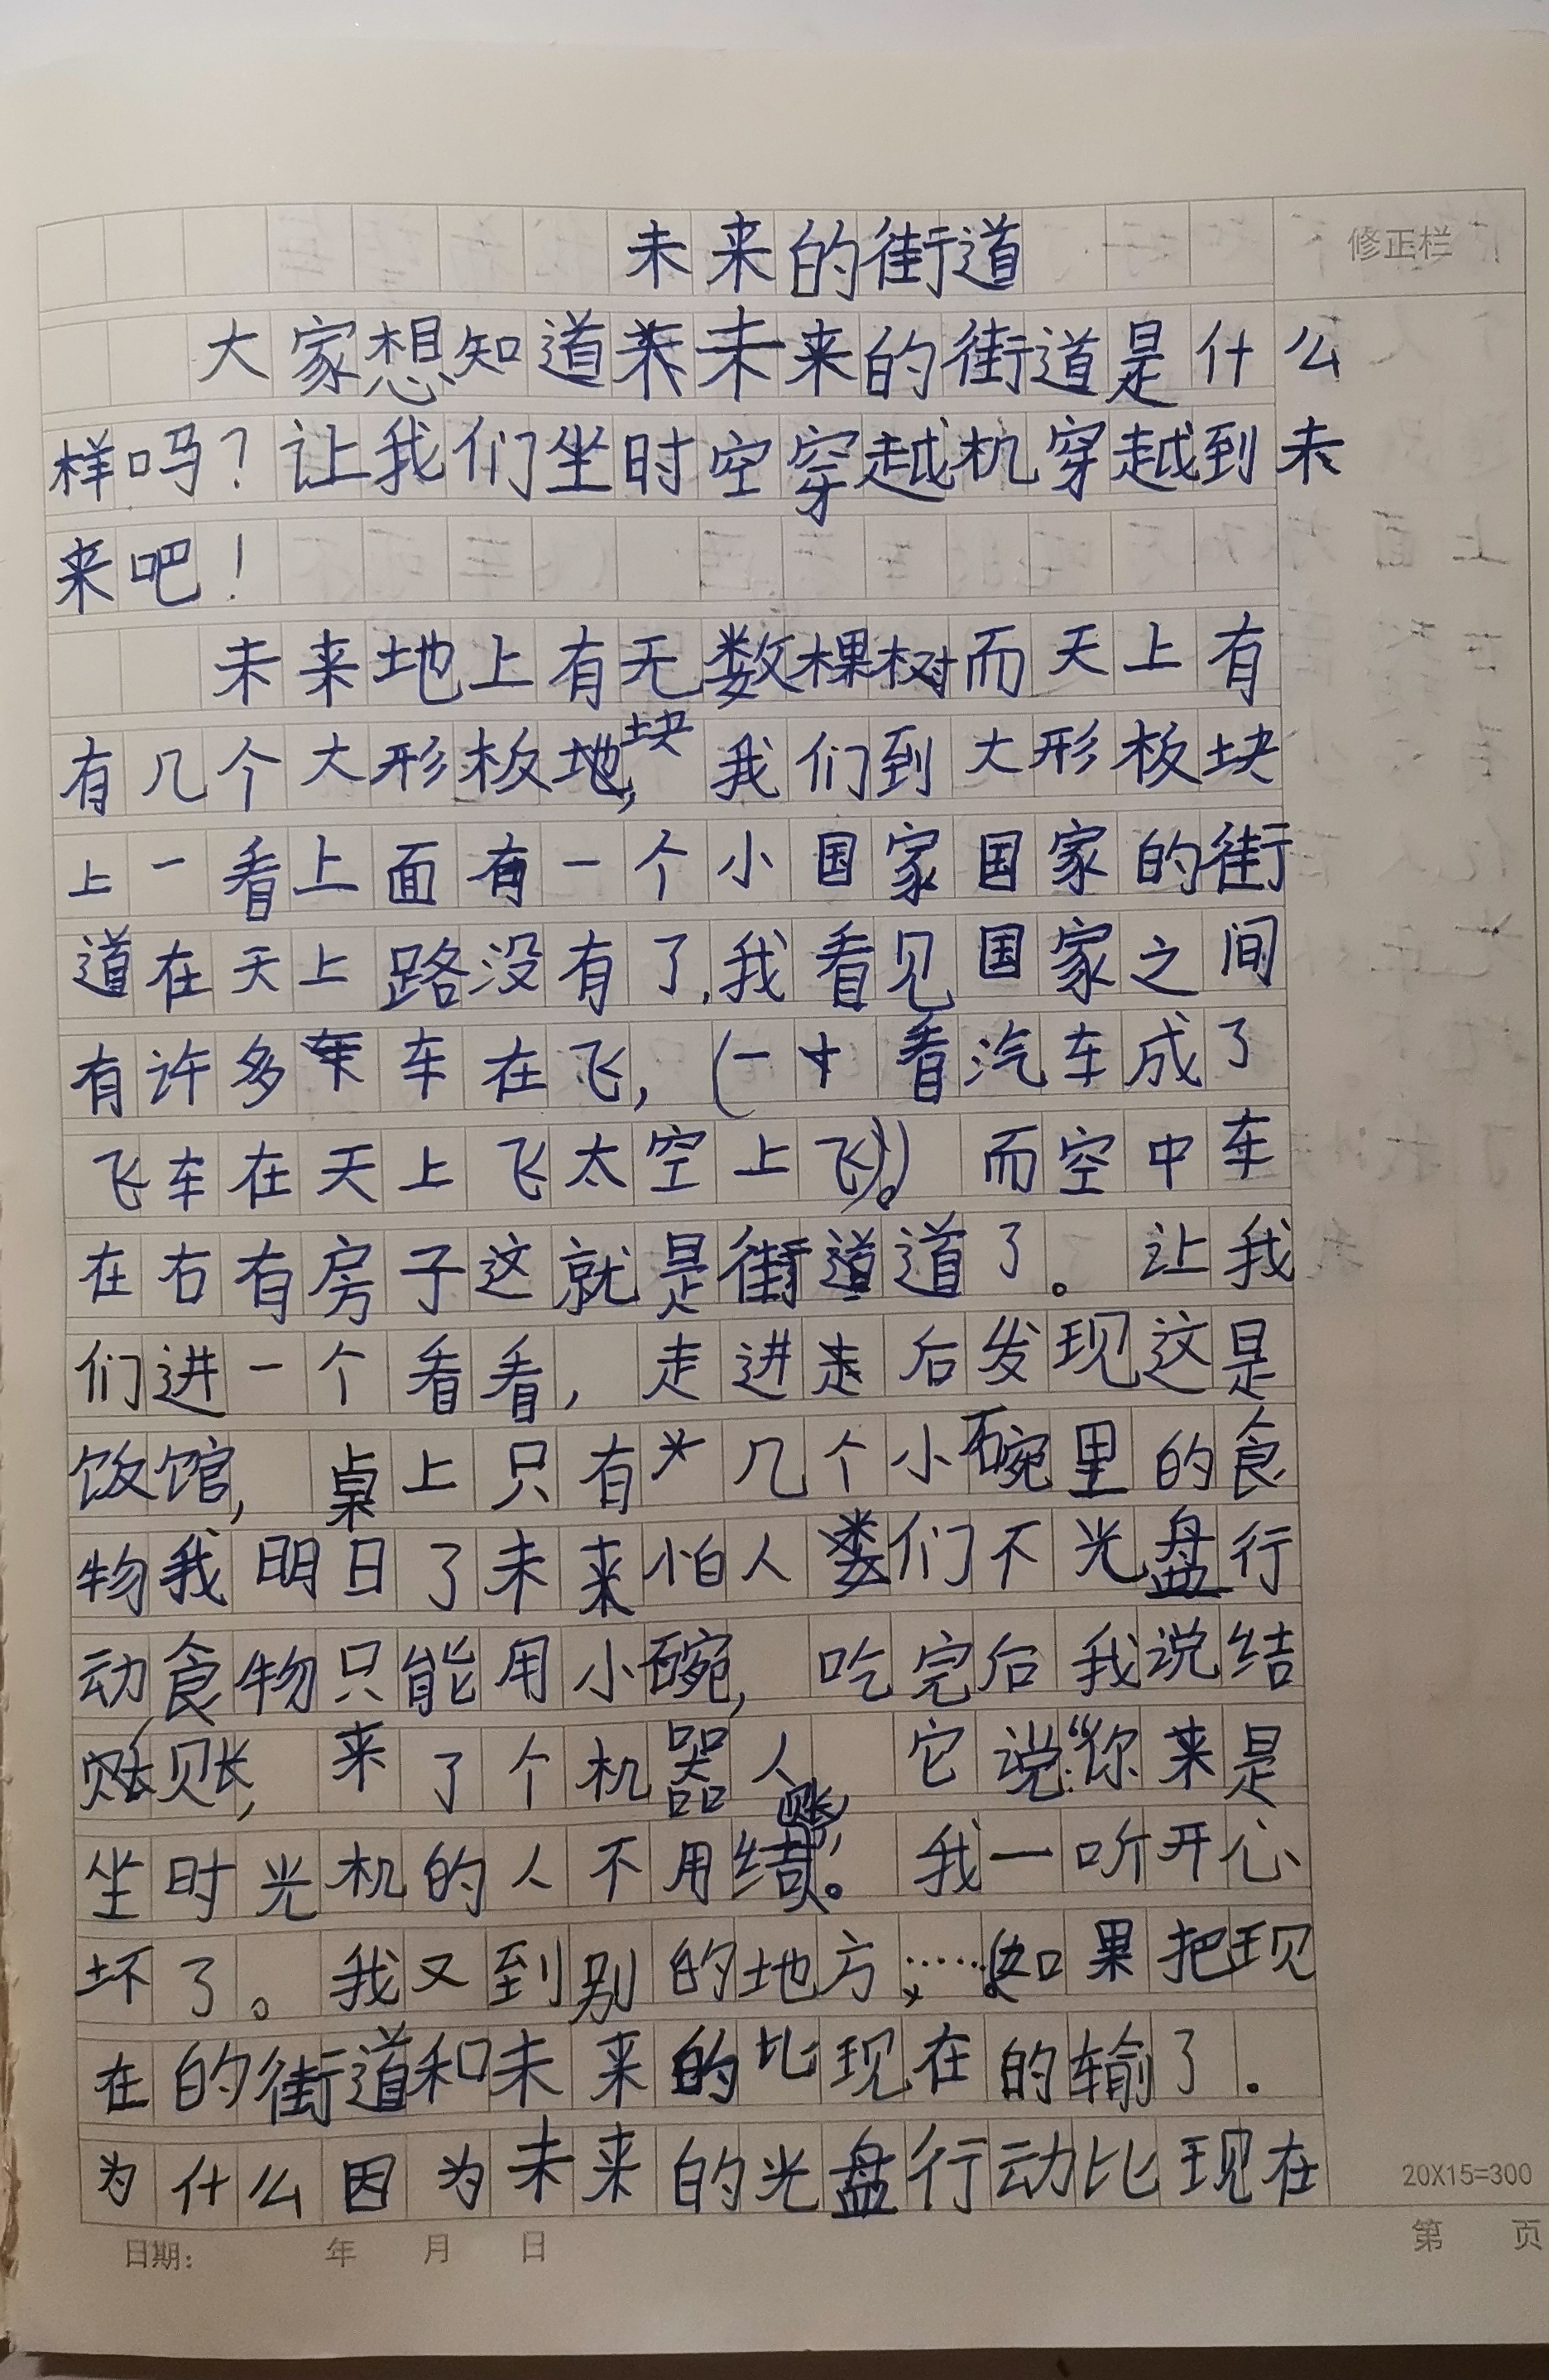 未来的街道
修正栏
大家想知道未来的街道是什么
样吗？让我们坐时空穿越机穿越到未
来吧！
未来地上有无数棵树而天上有
有几个大形板块，我们到大形板块
上一看上面有一个小国家国家的街
道在天上路没有了，我看见国家之间
有许多车在飞，（一十看汽车成了
飞车在天上飞太空上飞）。而空中车
在右有房子这就是街道了。让我
们进一个看看，走进走后发现这是
饭馆，桌上只有几个小碗里的食
物我明日了未来怕人们不光盘行
动食物只能用小碗，吃完后我说结
账，来了个机器人，它说：“你来是
坐时光机的人不用结账”。我一听开心
坏了。我又到别的地方，……。如果把现
在的街道和未来的比现在的输了.
为什么因为未来的光盘行动比现在
20X15=300
日期： 年 月 日
第 页